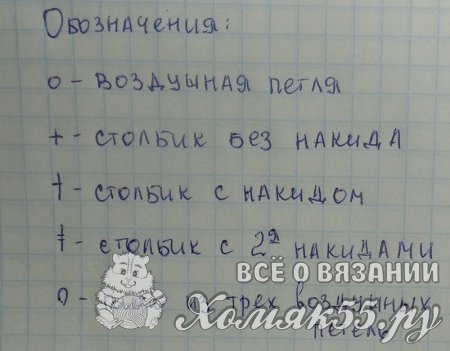 Обозначения:
о - воздушная петля
+ - столбик без накида
† - столбик с накидом
ǂ - столбик с 2я накидами
ВСЁ О ВЯЗАНИИ
0 - из трех воздушных
петель
Хомяк55.ру